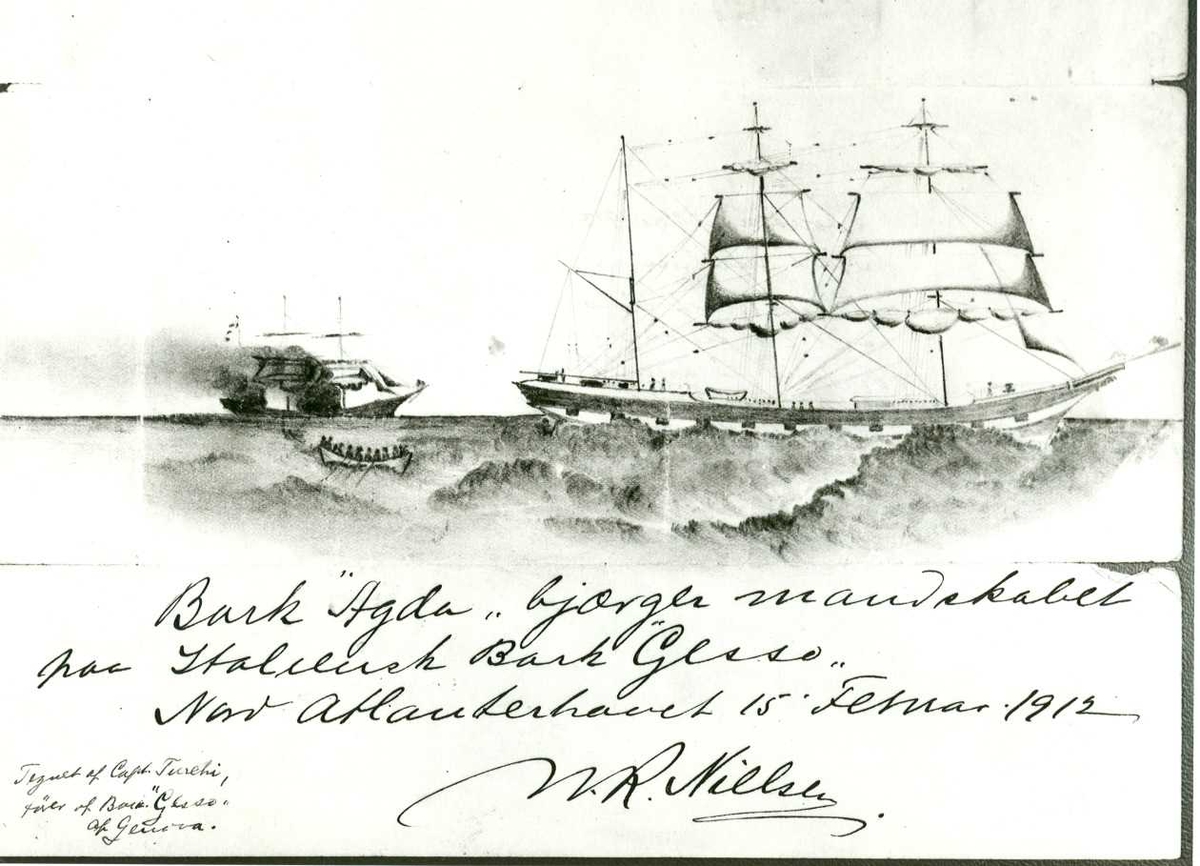 Bark "Agda" bjærger mandskabet
paa Italiensk Bark "Gesso"
Nord Atlanterhavet 15 Februar. 1912
N. R. Nielsen
Tegnet af Capt. Turchi,
fører af Bark "Gesso"
af Genova.